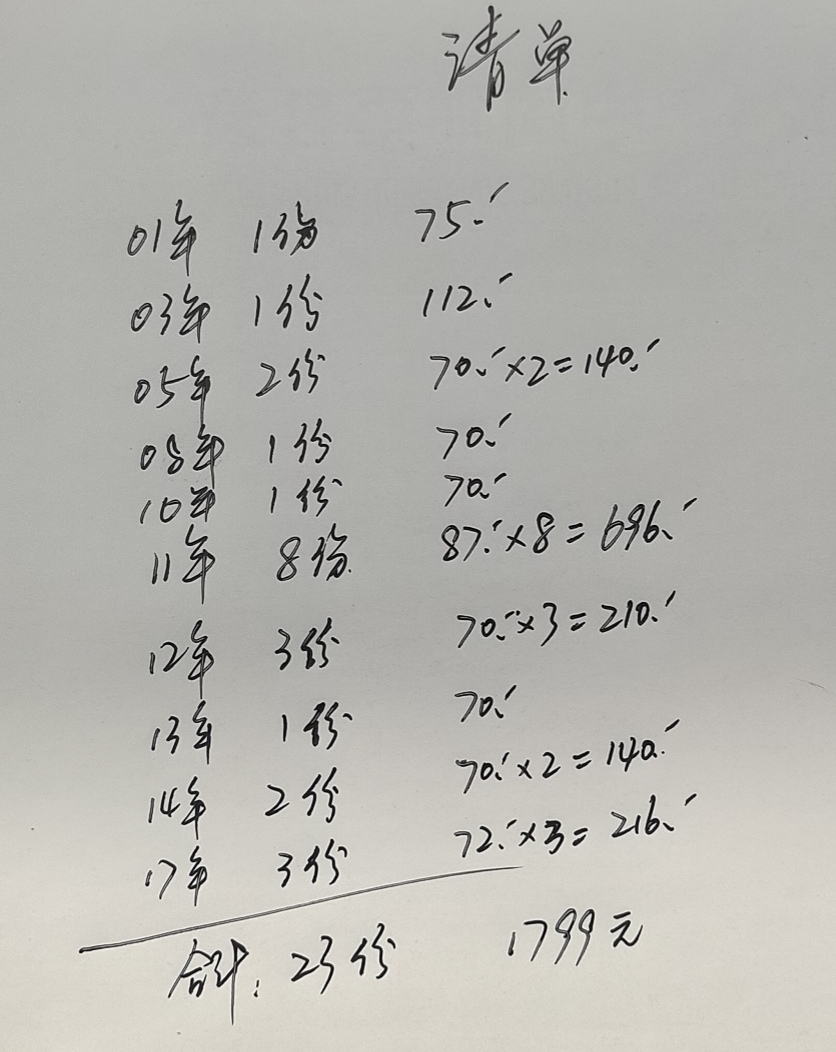 清单
01年 1份 75.
03年 1份 112.
05年 2份 70.×2=140.
08年 1份 70.
10年 1份 70.
11年 8份 87.×8=696.
12年 3份 70.×3=210.
13年 1份 70.
14年 2份 70.×2=140.
17年 3份 72.×3=216.
合计: 23份 1799元